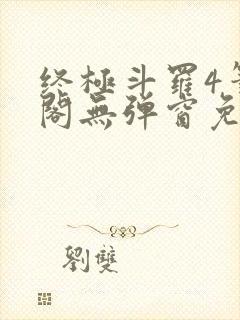 终極斗羅4
閣無弹窗免
劉雙